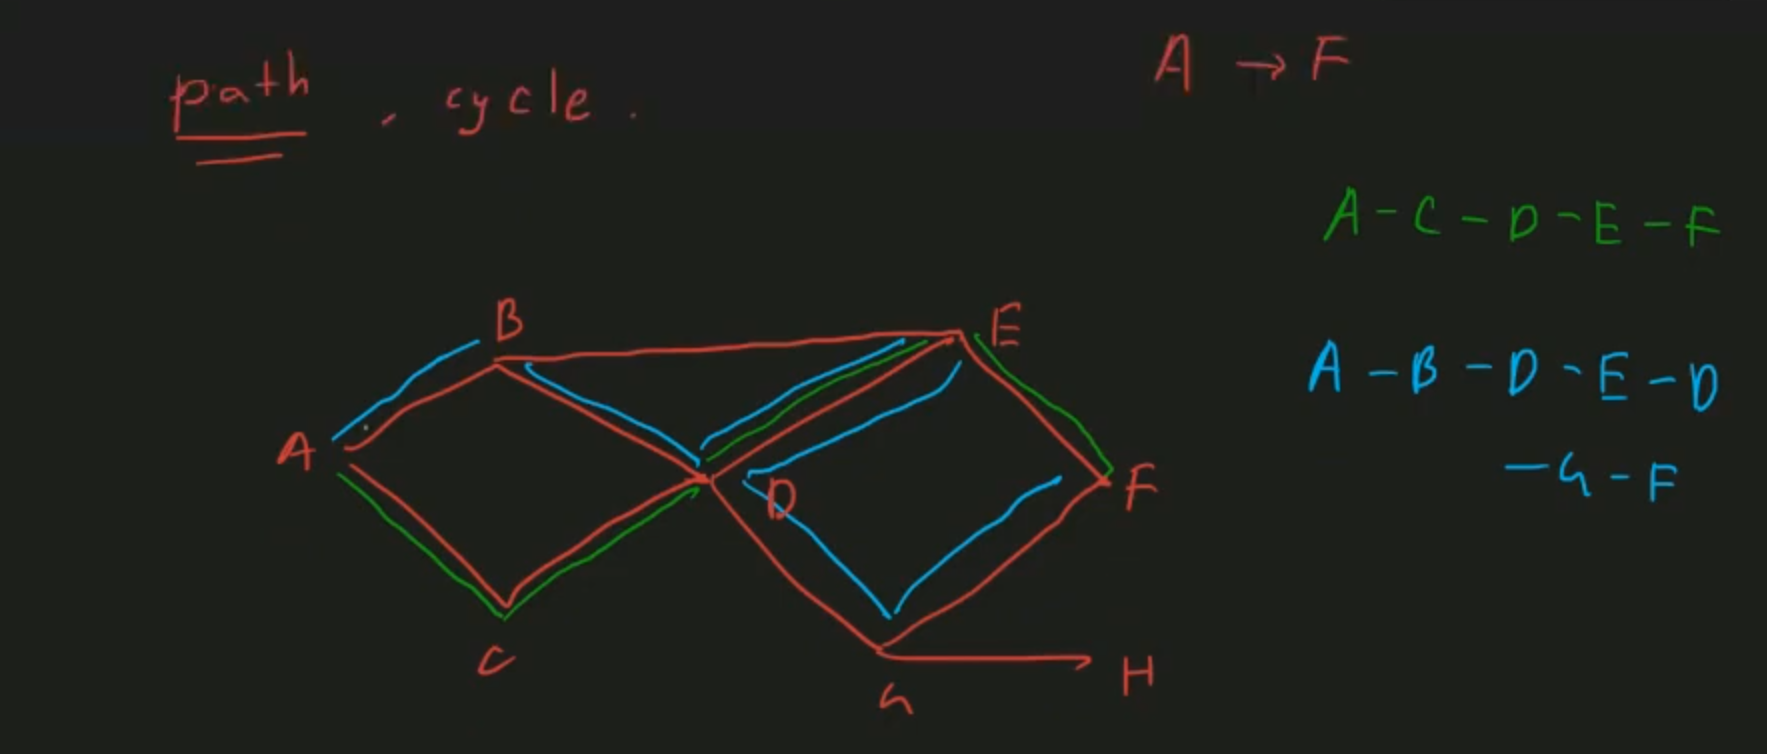 path , cycle .
A → F
A - C - D - E - F
A - B - D - E - D
- G - F
B
E
A
D
F
C
G
H